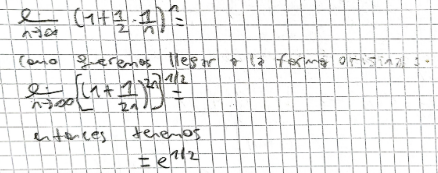 lim n→∞ (1+1/2·1/n)^n =
Como queremos llegar a la forma original:
lim n→∞ [(1+1/2n)^2n]^1/2 =
entonces tenemos
= e^1/2